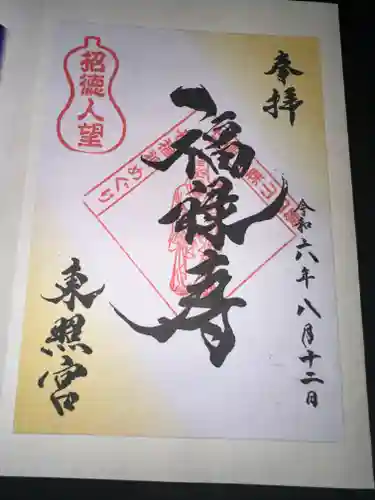 奉拝
令和六年八月十二日
福禄寿
東照宮
招徳人望
めぐり